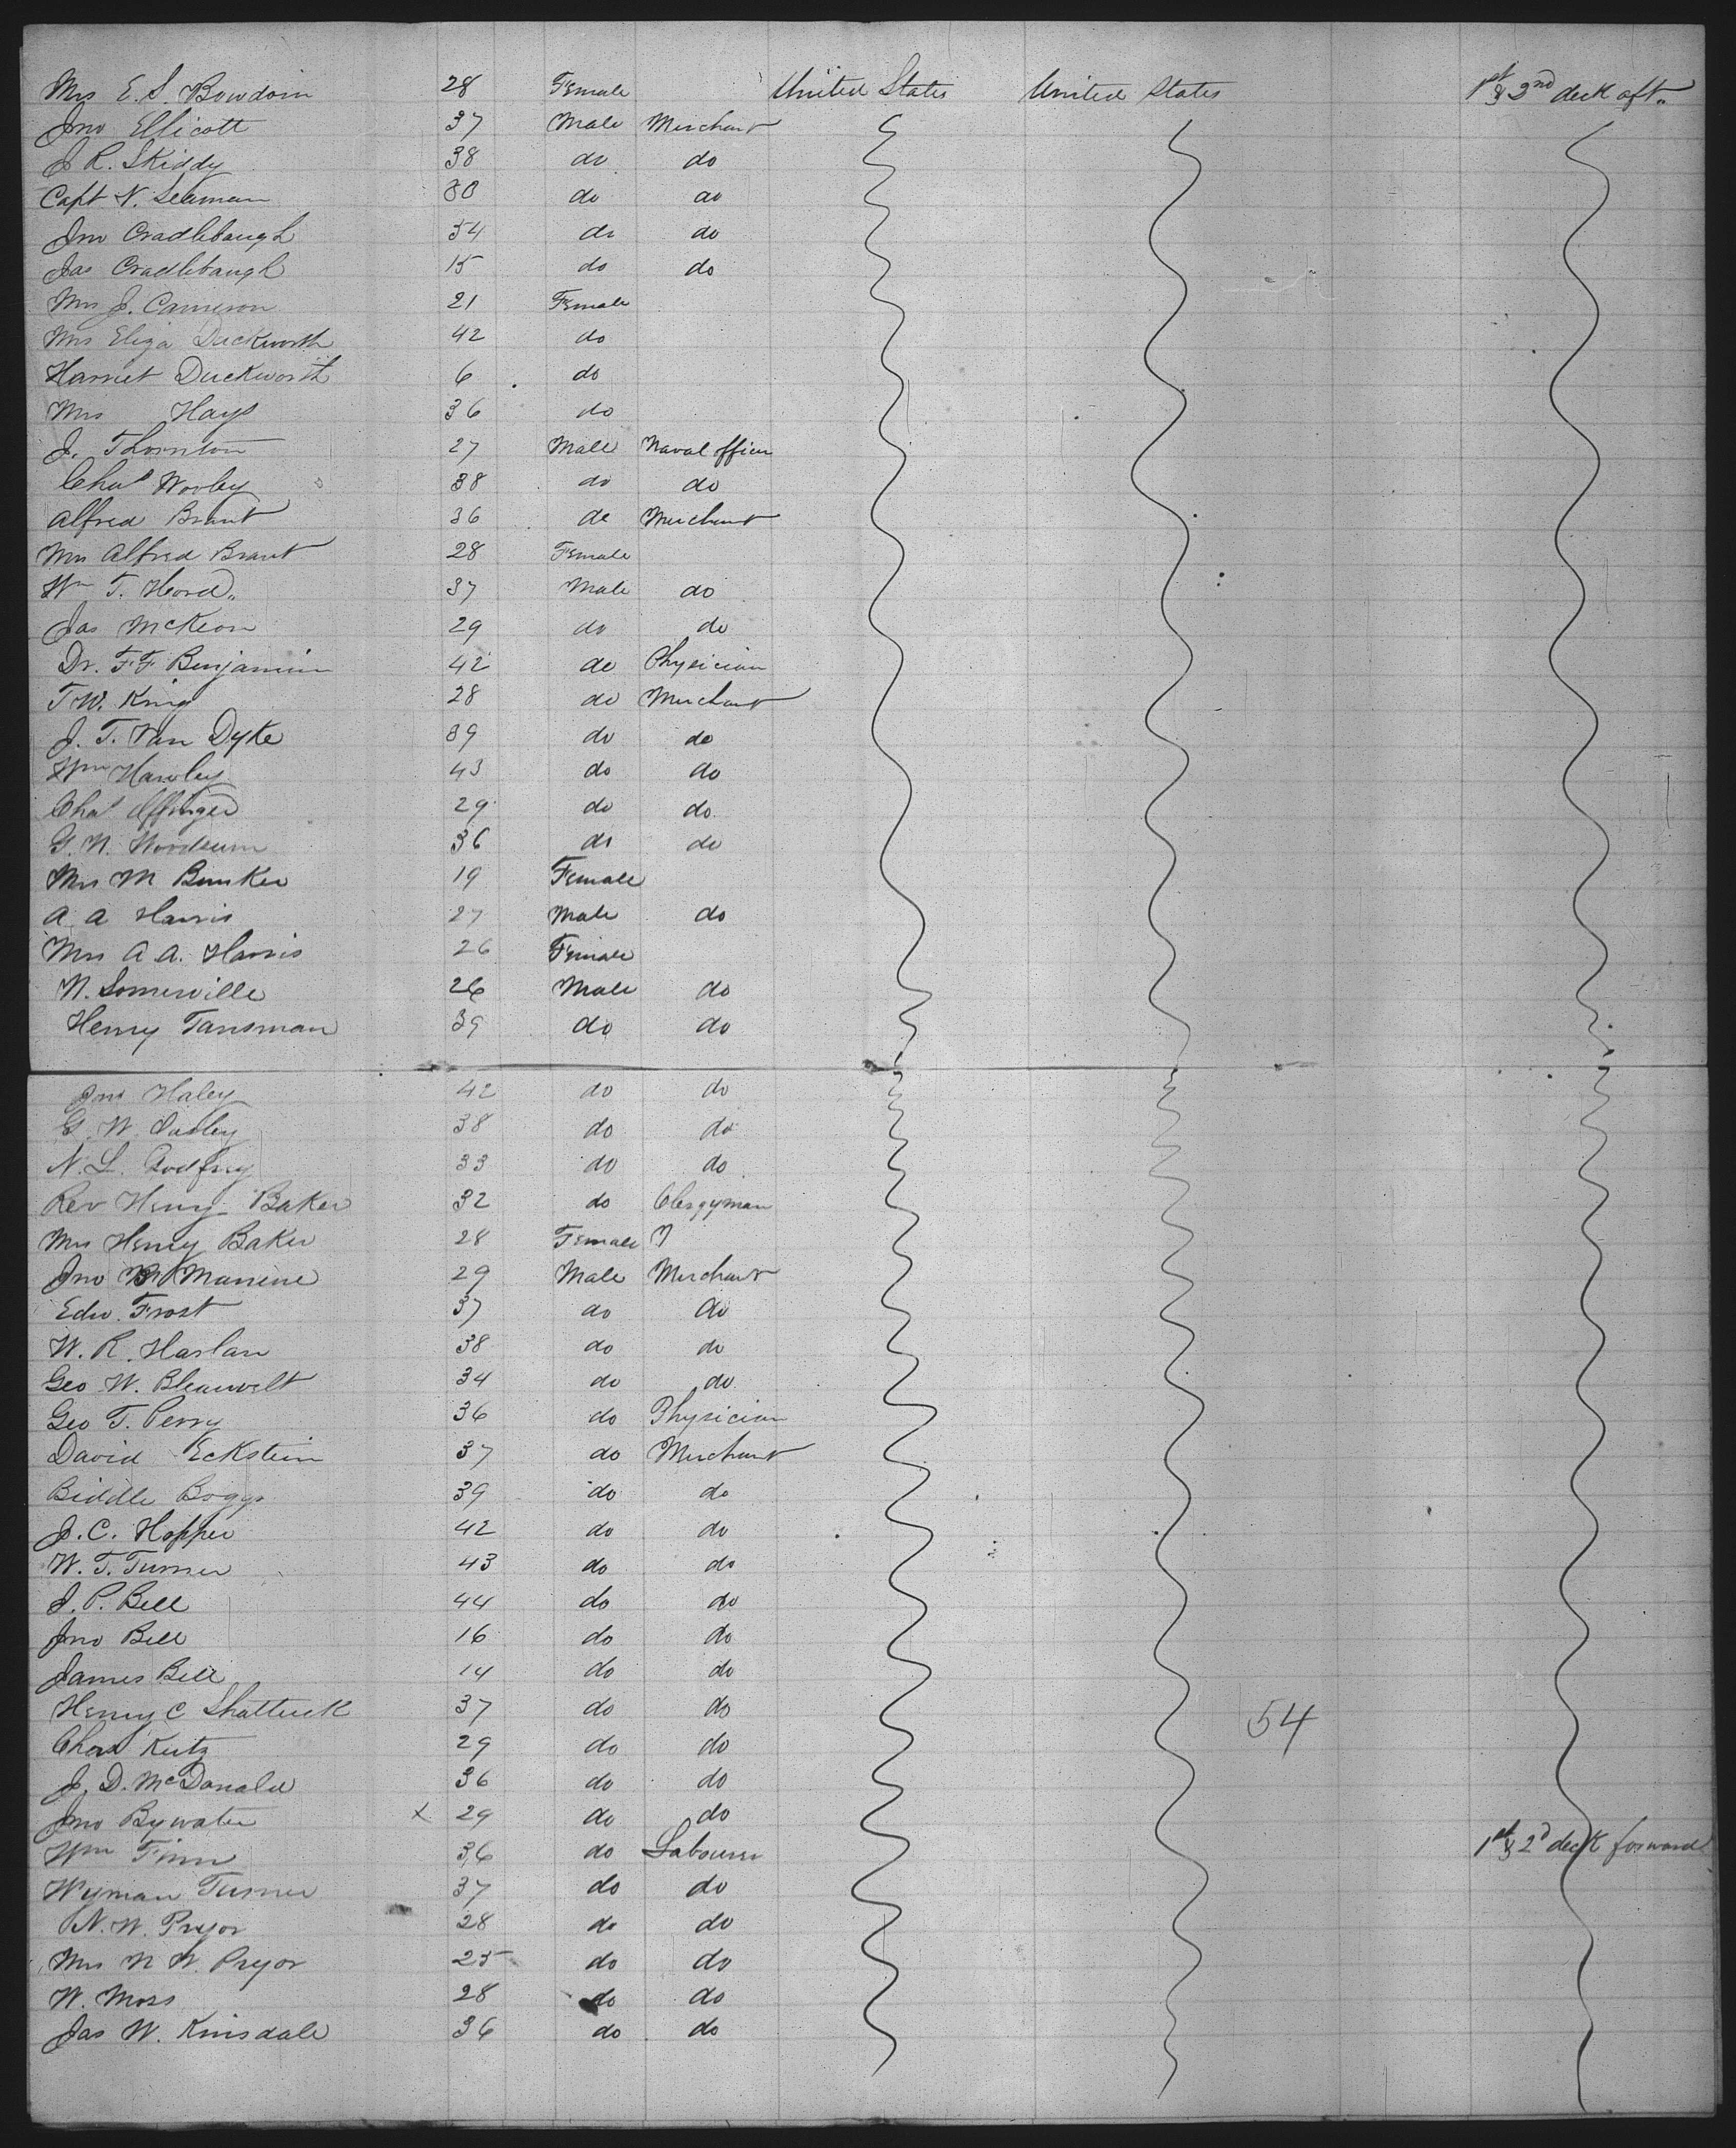 Mrs E. S. Bowdoin 28 Female United States United States 1st & 2nd deck aft.
Jno Ellicott 37 Male Merchant
J R. Skiddy 38 do do
Capt N. Seaman 30 do do
Jno Cradlebaugh 34 do do
Jas Cradlebaugh 15 do do
Mrs J. Cameron 21 Female
Mrs Eliza Duckworth 42 do
Harriet Duckworth 6 do
Mrs Hays 36 do
J. Thornton 27 Male Naval officer
Chas Wooley 38 do do
Alfred Brant 36 do Merchant
Mrs Alfred Brant 28 Female
Wm T. Hord. 37 Male do
Jas McKeon 29 do do
Dr. F F Benjamin 42 do Physician
T W. King 28 do Merchant
J. T. Van Dyke 39 do do
Wm Hawley 43 do do
Chas 29 do do
G. N. 36 do do
Mrs M Bunker 19 Female
A. A Harris 27 Male do
Mrs A A. Harris 26 Female
N. Somerville 26 Male do
Henry Tansman 39 do do
Jno Haley 42 do do
G. W. 38 do do
N. L. Godfrey 33 do do
Rev Henry Baker 32 do Clergyman
Mrs Henry Baker 28 Female
Jno 29 Male Merchant
Edw. Frost 37 do do
W. R. Harlan 38 do do
Geo W. Bleauvelt 34 do do
Geo T. Perry 36 do Physician
David Eckstein 37 do Merchant
Biddle Boggs 39 do do
J. C. Hopper 42 do do
W. T. Turner 43 do do
J. P. Bell 44 do do
Jno Bell 16 do do
James Bell 14 do do
Henry C Shattuck 37 do do 54
Chas Kutz 29 do do
J. D. McDonald 36 do do
Jno Bywater x 29 do do
Wm Finn 36 do Labourer 1st & 2d deck forward
Wyman Turner 37 do do
N. W. Pryor 28 do do
Mrs N W. Pryor 25 do do
W. Moss 28 do do
Jas W. Kinsdale 36 do do